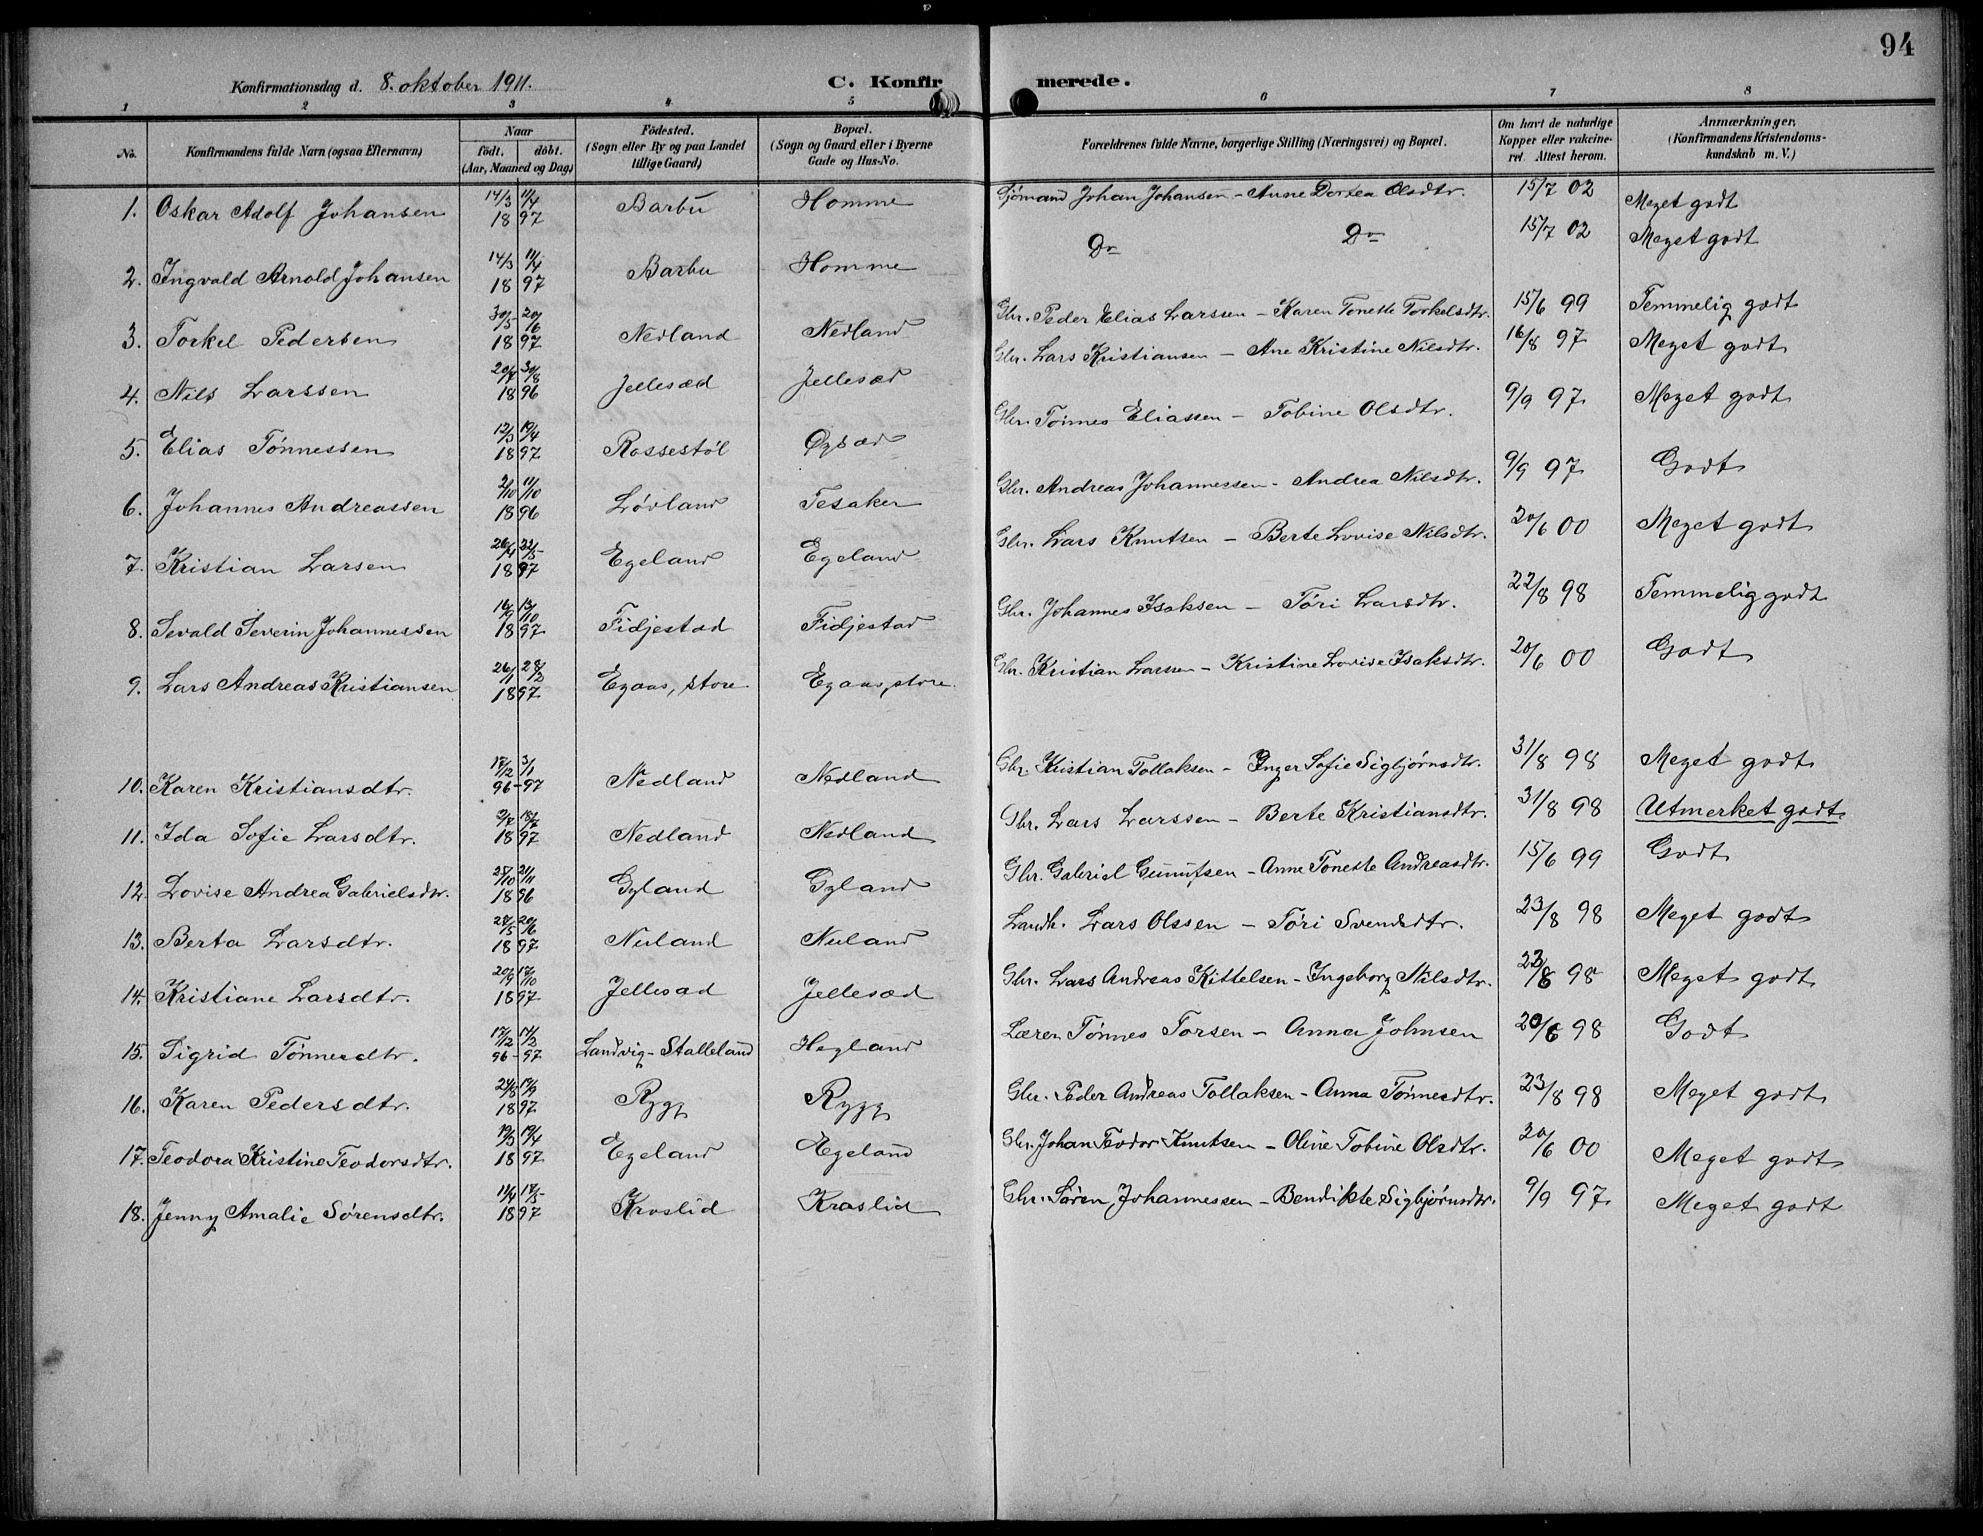 94
Konfirmationsdag d. 8. oktober 1911. C. Konfirmerede.
1 2 3 4 5 6 7 8
No. Konfirmandens fulde Navn (ogsaa Efternavn) Naar födt. döbt. (Aar, Maaned og Dag) Födested. (Sogn eller By og paa Landet tillige Gaard) Bopæl. (Sogn og Gaard eller i Byerne Gade og Hus-No. Forældrenes fulde Navne, borgerlige Stilling (Næringsvei) og Bopæl. Om havt de naturlige Kopper eller vakcineret. Attest herom. Anmærkninger, (Konfirmandens Kristendomskundskab m. V.)
1. Oskar Adolf Johansen 14/3 11/4 1897 Barbu Homme Sjømand Johan Johansen - Anne Dortea Olsdtr. 15/7 02 Meget godt
2. Ingvald Arnold Johansen 14/3 11/4 1897 Barbu Homme Do Do 15/7 02 Meget godt
3. Torkel Pedersen 30/5 20/6 1897 Nedland Nedland Gbr. Peder Elias Larssen - Karen Tonette Torkelsdtr. 15/6 99 Temmelig godt
4. Nils Larssen 20/7 30/8 1896 Jellesæd Jellesæd Gbr. Lars Kristiansen - Ane Kristine Nilsdtr. 16/8 97 Meget godt
5. Elias Tønnessen 12/3 19/4 1897 Rossestøl Øysæd Gbr. Tønnes Eliassen - Tobine Olsdtr. 9/9 97 Meget godt
6. Johannes Andreassen 2/10 11/10 1896 Løvland Tesaker Gbr. Andreas Johannessen - Andrea Nilsdtr. 9/9 97 Godt
7. Kristian Larsen 26/4 23/5 1897 Egeland Egeland Gbr. Lars Knutsen - Berte Lovise Nilsdtr. 20/6 00 Meget godt
8. Sevald Severin Johannessen 16/9 13/10 1897 Fidjestad Fidjestad Gbr. Johannes Isaksen - Töri Larsdtr. 22/8 98 Temmelig godt
9. Lars Andreas Kristiansen 26/1 28/2 1897 Egaas, store Egaas, store Gbr. Kristian Larssen - Kristine Lovise Isaksdtr. 20/6 00 Godt
10. Karen Kristiansdtr. 17/2 3/1 96-97 Nedland Nedland Gbr. Kristian Tollaksen - Inger Sofie Sigbjørnsdtr. 31/8 98 Meget godt
11. Ida Sofie Larsdtr. 1897 Nedland Nedland Gbr. Lars Larssen - Berte Kristiansdtr. 31/8 98 Utmerket godt
12. Lovise Andrea Gabrielsdtr. 25/10 21/11 1896 Gyland Gyland Gbr. Gabriel Gunulfsen - Anne Tonette Andreasdtr. 15/6 99 Godt
13. Berta Larsdtr. 28/5 20/6 1897 Nuland Nuland Landh. Lars Olssen - Töri Svendsdtr. 23/8 98 Meget godt
14. Kristiane Larsdtr. 20/9 17/10 1897 Jellesæd Jellesæd Gbr. Lars Andreas Kittelsen - Ingeborg Nilsdtr. 23/8 98 Meget godt
15. Sigrid Tønnesdtr. 96-97 Landvig-Stalleland Hegland Læren Tønnes Torsen - Anna Johnsen 20/6 98 Godt
16. Karen Pedersdtr. 1897 Rygg Rygg Gbr. Peder Andreas Tollaksen - Anna Tønnesdtr. 23/8 98 Meget godt
17. Teodora Kristine Teodorsdtr. 19/3 19/4 1897 Egeland Egeland Gbr. Johan Teodor Knutsen - Oline Tobine Olsdtr. 20/6 00 Meget godt
18. Jenny Amalie Sørensdtr. 11/4 17/5 1897 Kroslid Kroslid Gbr. Søren Johannessen - Bendikte Sigbjørnsdtr. 9/9 97 Meget godt